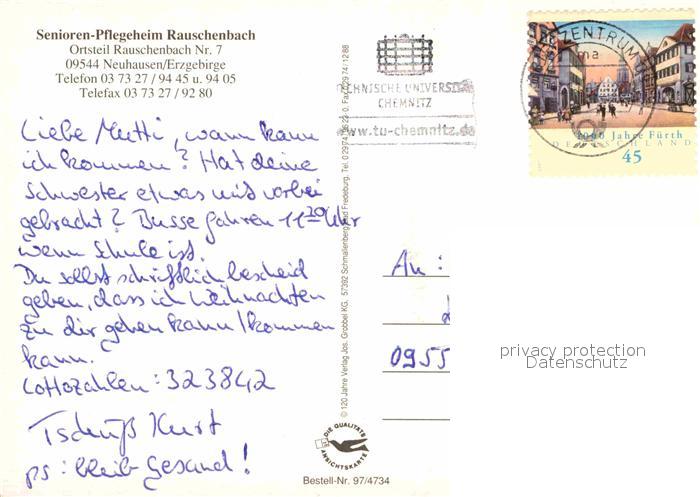 Senioren-Pflegeheim Rauschenbach
Ortsteil Rauschenbach Nr. 7
09544 Neuhausen/Erzgebirge
Telefon 03 73 27 / 94 45 u. 94 05
Telefax 03 73 27 / 92 80
Liebe Mutti, wann kann
ich kommen? Hat deine
Schwester etwas mit vorbei
gebracht? Busse fahren 11 20 Uhr
wenn Schule ist.
Du sollst schriftlich bescheid
geben, dass ich Weihnachten
zu dir gehen kann/kommen
kann.
Lottozahlen: 323842
Tschüß Kurt
ps: bleib Gesund!
TECHNISCHE UNIVERSITÄT
CHEMNITZ
www.tu-chemnitz.de
ZENTRUM
1000 Jahre Fürth
DEUTSCHLAND
45
An:
0955
privacy protection
Datenschutz
© 120 Jahre Verlag Jos. Grobbel KG, 57392 Schmallenberg und Fredeburg, Tel.
DIE QUALITÄTS
ANSICHTSKARTE
Bestell-Nr. 97/4734